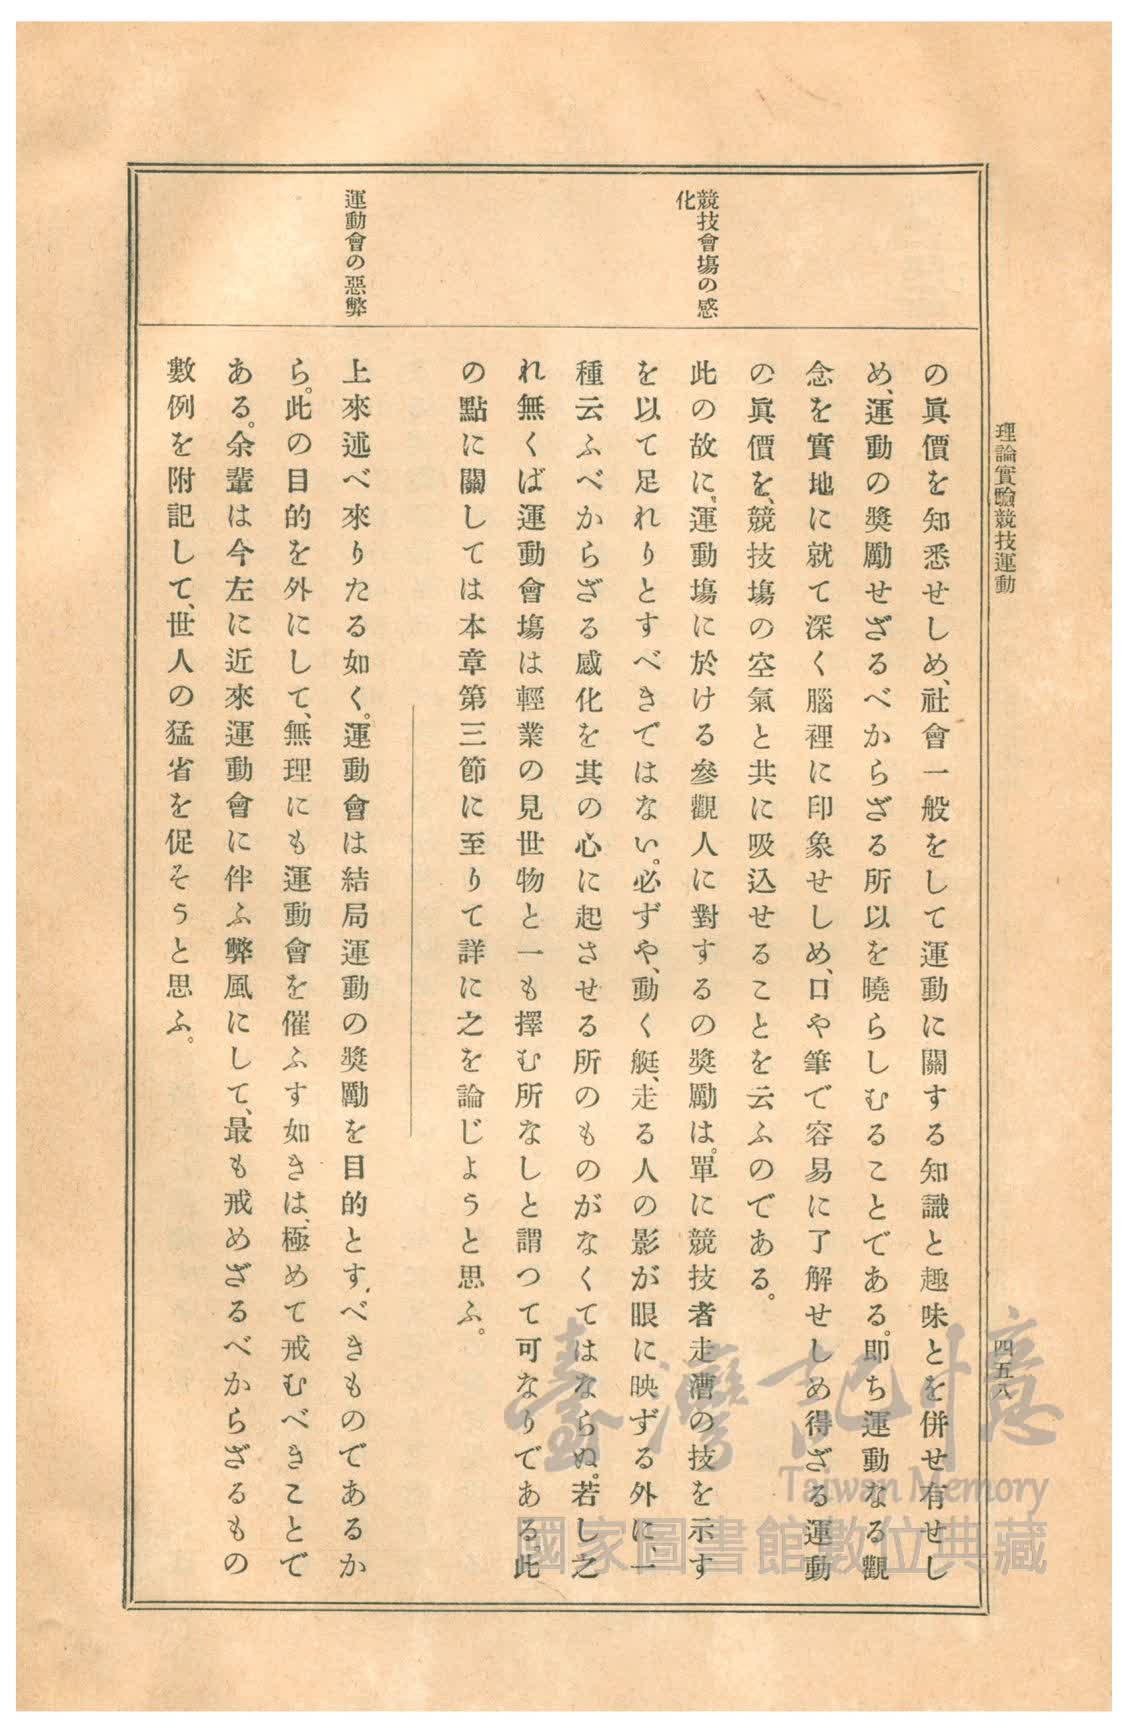 理論實驗競技運動
四五八
競技會塲の感
化
運動會の惡弊
の眞價を知悉せしめ、社會一般をして運動に關する知識と趣味とを併せ有せし
め、運動の奬勵せざるべからざる所以を曉らしむることである。卽ち運動なる觀
念を實地に就て深く腦裡に印象せしめ、口や筆で容易に了解せしめ得ざる運動
の眞價を、競技塲の空氣と共に吸込せることを云ふのである。
此の故に、運動塲に於ける參觀人に對するの奬勵は。單に競技者走漕の技を示す
を以て足れりとすべきではない。必ずや、動く艇、走る人の影が眼に映ずる外に、一
種云ふべからざる感化を其の心に起させる所のものがなくてはならぬ。若し之
れ無くば運動會塲は輕業の見世物と一も擇む所なしと謂つて可なりである。此
の點に關しては本章第三節に至りて詳に之を論じようと思ふ。
上來述べ來りたる如く。運動會は結局運動の奬勵を目的とす、べきものであるか
ら。此の目的を外にして、無理にも運動會を催ふす如きは、極めて戒むべきことで
ある。余輩は今左に近來運動會に伴ふ弊風にして、最も戒めざるべからざるもの
數例を附記して、世人の猛省を促そうと思ふ。
臺灣記憶
Taiwan Memory
國家圖書館數位典藏